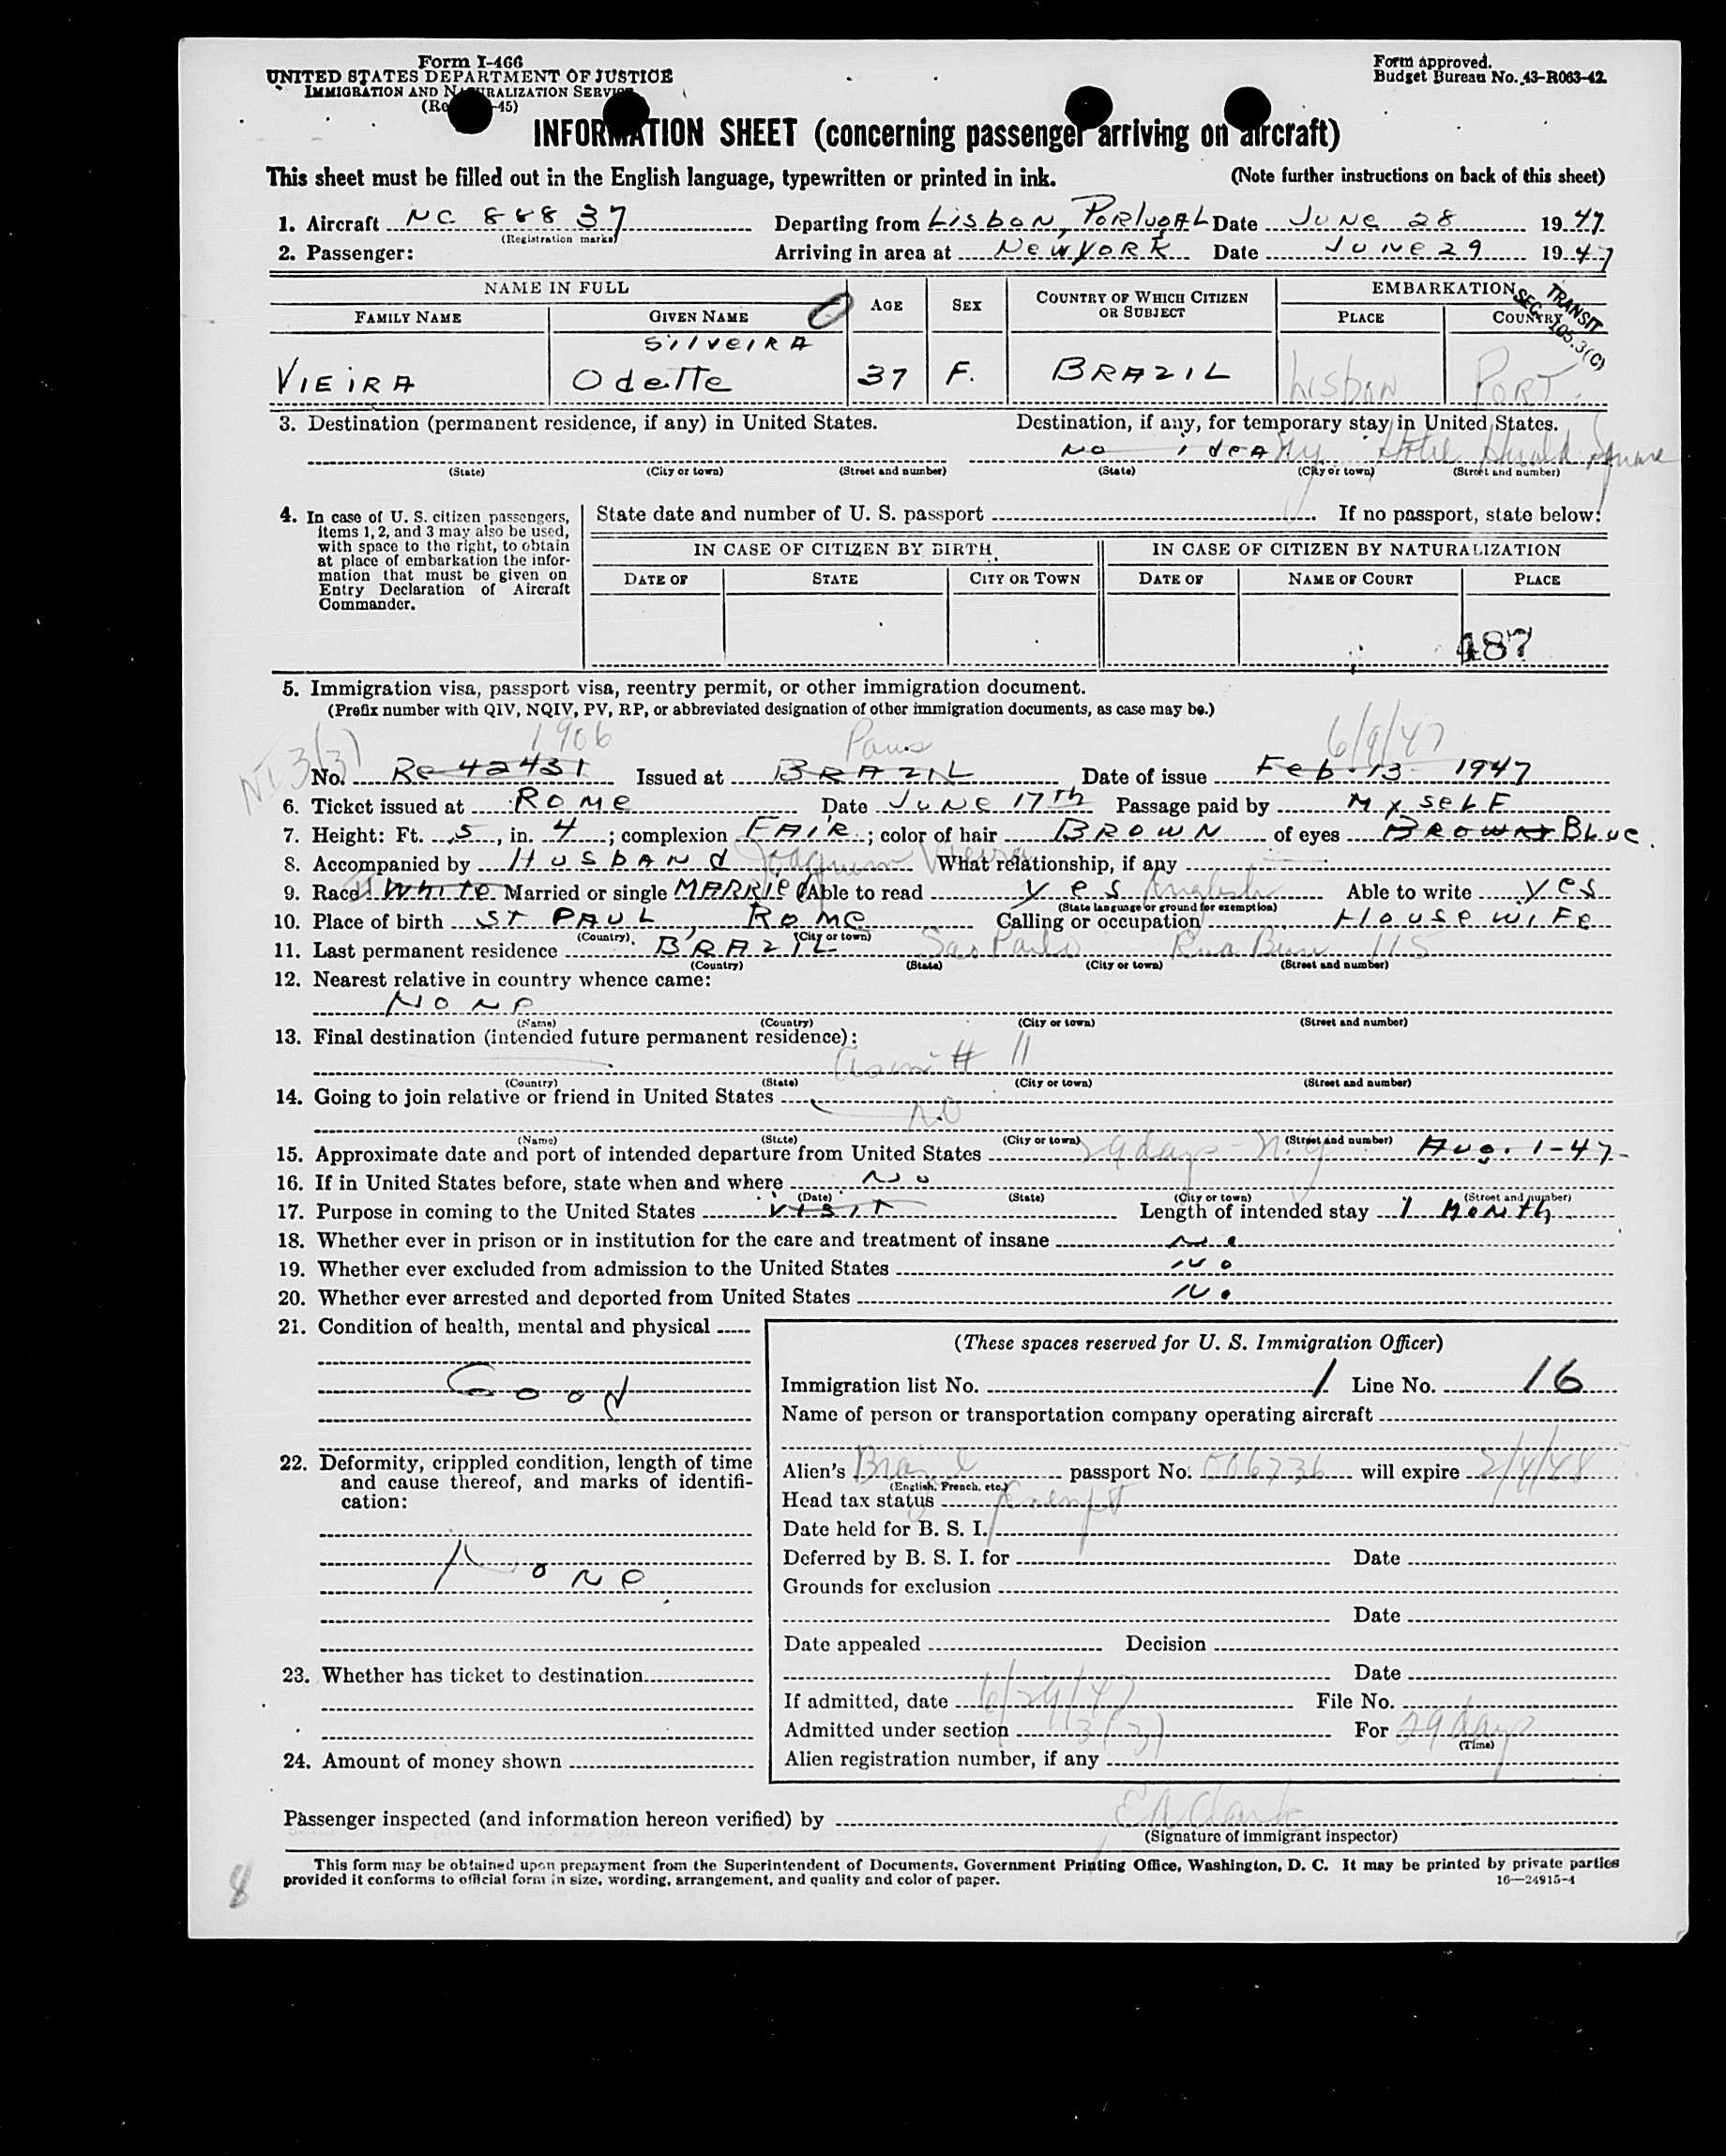 Form I-466
UNITED STATES DEPARTMENT OF JUSTICE
IMMIGRATION AND NATURALIZATION SERVICE
Form approved.
Budget Bureau No. 43-R063-42.
INFORMATION SHEET (concerning passenger arriving on aircraft)
This sheet must be filled out in the English language, typewritten or printed in ink. (Note further instructions on back of this sheet)
1. Aircraft NC 88837 Departing from LISBON, PORTUGAL Date JUNE 28 1947
(Registration marks)
2. Passenger: Arriving in area at NEW YORK Date JUNE 29 1947
NAME IN FULL AGE SEX COUNTRY OF WHICH CITIZEN OR SUBJECT EMBARKATION
FAMILY NAME GIVEN NAME PLACE COUNTRY
TRANSIT
SEC. 105.3(C)
SILVEIRA
VIEIRA Odette 37 F. BRAZIL Lisbon PORT.
3. Destination (permanent residence, if any) in United States. Destination, if any, for temporary stay in United States.
NO idea NY Hotel Herald Square
(State) (City or town) (Street and number) (State) (City or town) (Street and number)
4. In case of U. S. citizen passengers, items 1, 2, and 3 may also be used, with space to the right, to obtain at place of embarkation the information that must be given on Entry Declaration of Aircraft Commander.
State date and number of U. S. passport If no passport, state below:
IN CASE OF CITIZEN BY BIRTH IN CASE OF CITIZEN BY NATURALIZATION
DATE OF STATE CITY OR TOWN DATE OF NAME OF COURT PLACE
487
5. Immigration visa, passport visa, reentry permit, or other immigration document.
(Prefix number with QIV, NQIV, PV, RP, or abbreviated designation of other immigration documents, as case may be.)
3(3) 1906 Paris 6/9/47
No. Re 42431 Issued at BRAZIL Date of issue Feb. 13 1947
6. Ticket issued at ROME Date JUNE 17th Passage paid by MY SELF
7. Height: Ft. 5, in. 4; complexion FAIR; color of hair BROWN of eyes BROWN BLUE.
8. Accompanied by HUSBAND Joaquim Vieira What relationship, if any
9. Race White Married or single MARRIED Able to read yes English Able to write yes
(State language or ground for exemption)
10. Place of birth ST PAUL, ROME Calling or occupation HOUSEWIFE
(Country) (City or town)
11. Last permanent residence BRAZIL Sao Paulo Rua 115
(Country) (State) (City or town) (Street and number)
12. Nearest relative in country whence came:
NONE
(Name) (Country) (City or town) (Street and number)
13. Final destination (intended future permanent residence):
# 11
(Country) (State) (City or town) (Street and number)
14. Going to join relative or friend in United States
NO
(Name) (State) (City or town) (Street and number)
15. Approximate date and port of intended departure from United States 29 days - N.Y. Aug. 1-47
16. If in United States before, state when and where NO
(Date) (State) (City or town) (Street and number)
17. Purpose in coming to the United States VISIT Length of intended stay 1 MONTH
18. Whether ever in prison or in institution for the care and treatment of insane No
19. Whether ever excluded from admission to the United States No
20. Whether ever arrested and deported from United States No
21. Condition of health, mental and physical
Good
22. Deformity, crippled condition, length of time and cause thereof, and marks of identification:
None
23. Whether has ticket to destination
24. Amount of money shown
(These spaces reserved for U. S. Immigration Officer)
Immigration list No. 1 Line No. 16
Name of person or transportation company operating aircraft
Alien's Brazil passport No. 006736 will expire 2/4/48
(English, French, etc.)
Head tax status Exempt
Date held for B. S. I.
Deferred by B. S. I. for Date
Grounds for exclusion
Date
Date appealed Decision
Date
If admitted, date 6/29/47 File No.
Admitted under section 3(3) For 29 days
(Time)
Alien registration number, if any
Passenger inspected (and information hereon verified) by E A Clark
(Signature of immigrant inspector)
This form may be obtained upon prepayment from the Superintendent of Documents, Government Printing Office, Washington, D. C. It may be printed by private parties
provided it conforms to official form in size, wording, arrangement, and quality and color of paper. 16—24915-4
8